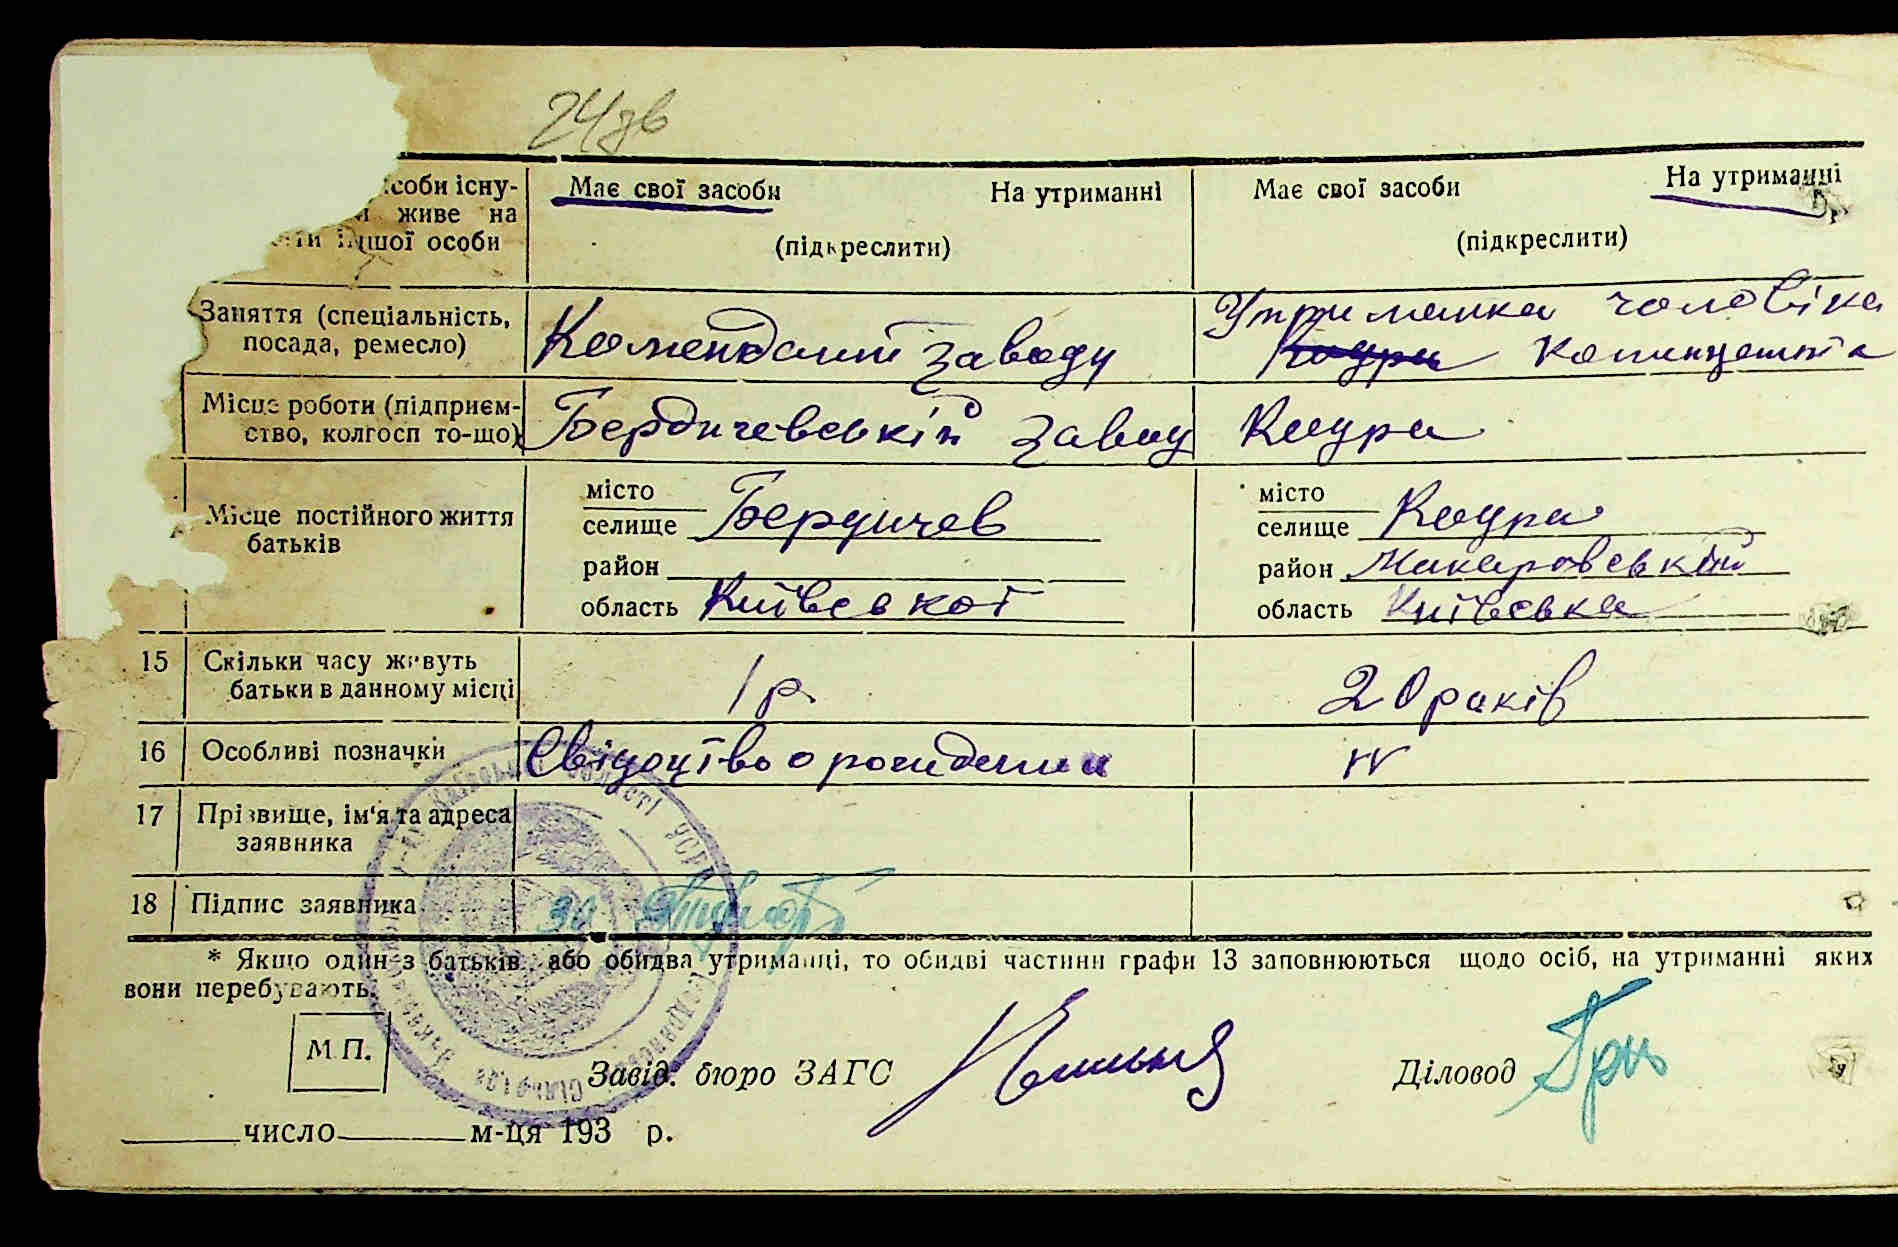 24 дв
соби існу-
живе на
іншої особи
Має свої засоби На утриманні
(підкреслити)
Має свої засоби На утриманні
(підкреслити)
Заняття (спеціальність,
посада, ремесло)
Комендант заводу
Утриманка чоловіка
Місце роботи (підприєм-
ство, колгосп то-що)
Бердичевській завод
Місце постійного життя
батьків
місто
селище Бердичев
район
область Київської
місто
селище
район Макаровській
область Київська
15 Скільки часу живуть
батьки в данному місці
1 р.
20 років
16 Особливі позначки
Свідоцтво о рождении
17 Прізвище, ім'я та адреса
заявника
18 Підпис заявника
за
* Якщо один з батьків, або обидва утриманці, то обидві частини графи 13 заповнюються щодо осіб, на утриманні яких
вони перебувають.
М.П.
Завід. бюро ЗАГС
Діловод
число м-ця 193 р.